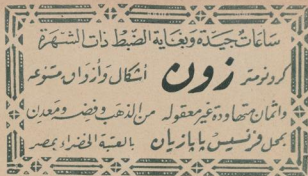 ساعات جيدة وبغاية الضبط ذات الشهرة
كرونومتر زون أشكال وأوزان متنوعه
واثمان متهاوده غير معقوله من الذهب وفضه ومعدن
بمحل فرنسيس بابازيان بالعتبة الخضراء بمصر